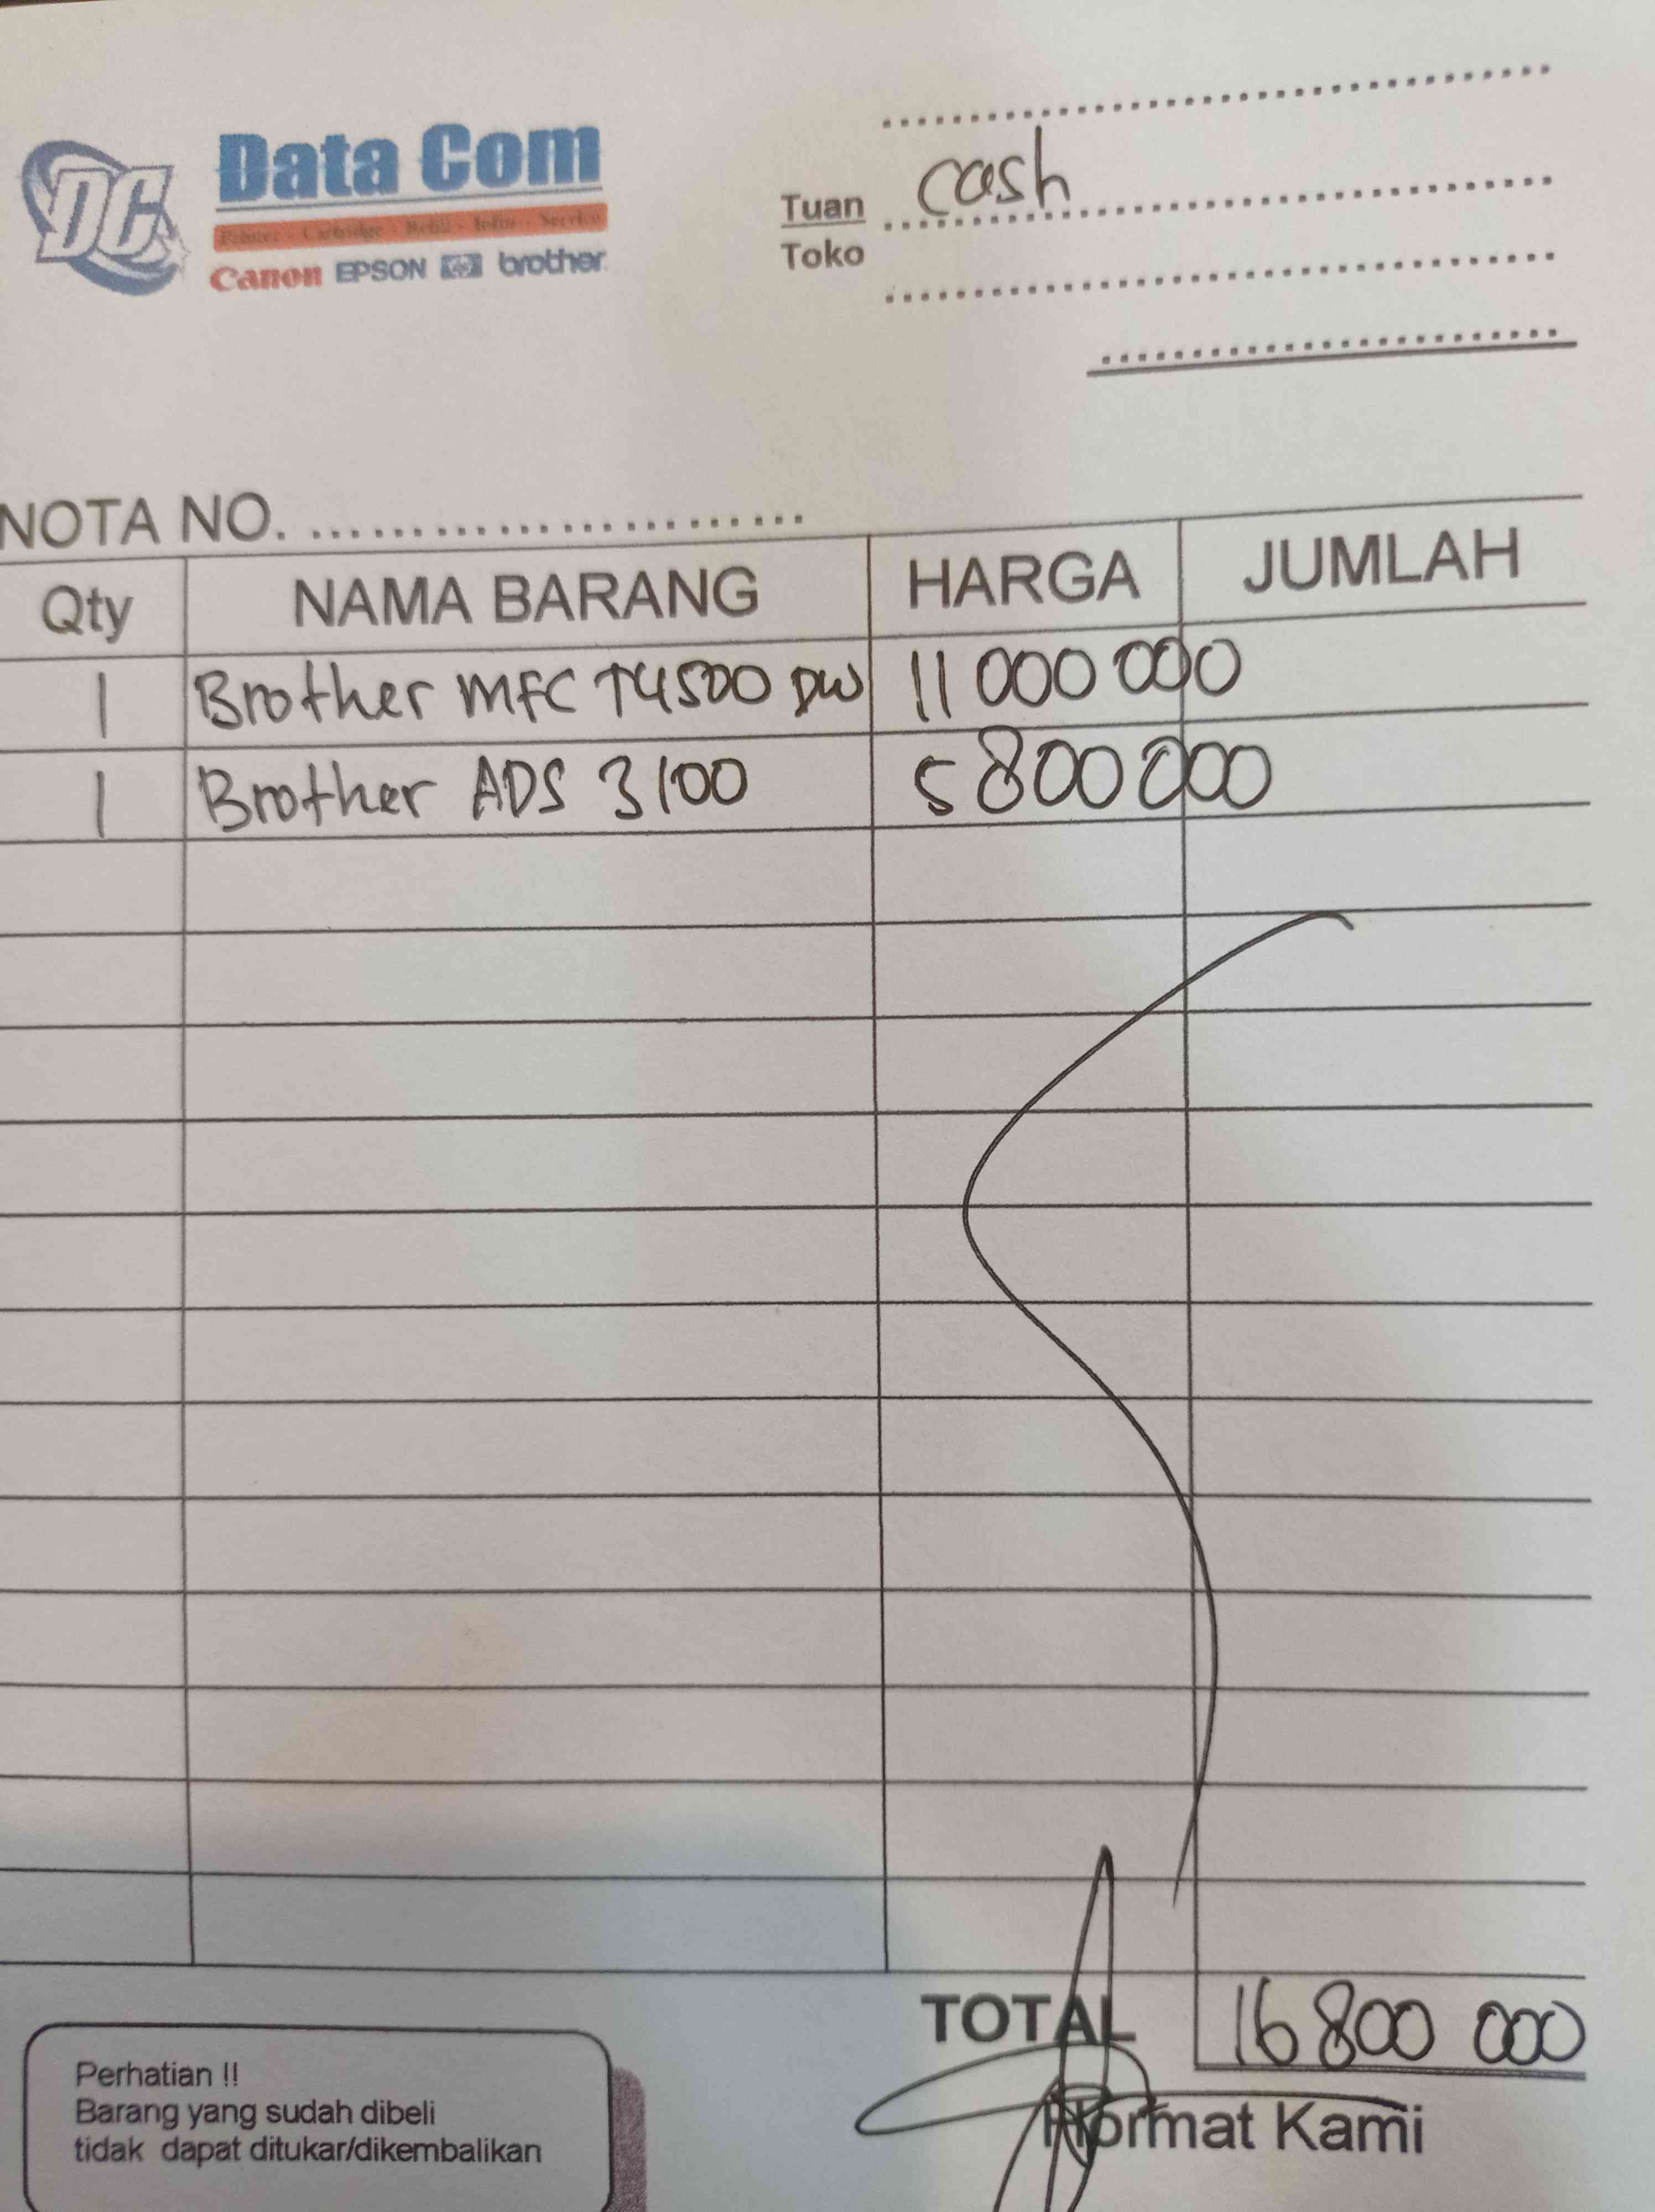 DC
Data Com
Printer - Cartridge - Refill - Infus - Service
Canon EPSON hp brother
Tuan cash
Toko
NOTA NO. ........................
Qty NAMA BARANG HARGA JUMLAH
1 Brother MFC T4500 DW 11 000 000
1 Brother ADS 3100 5 800 000
TOTAL 16 800 000
Hormat Kami
Perhatian !!
Barang yang sudah dibeli
tidak dapat ditukar/dikembalikan